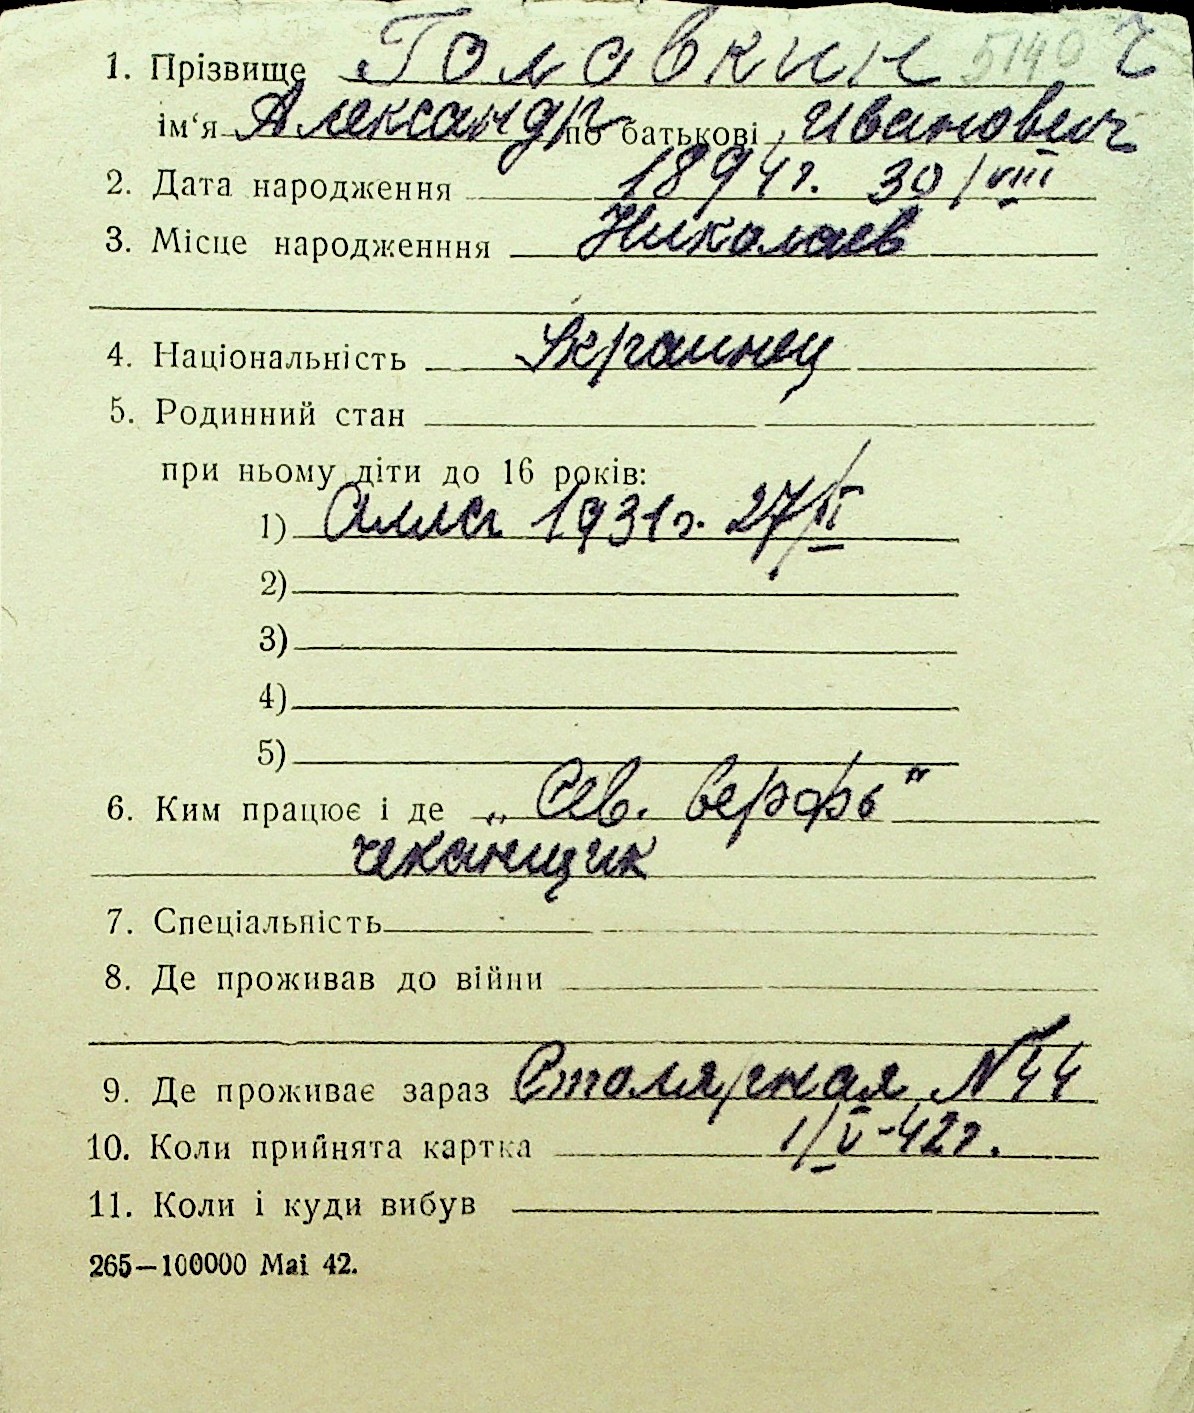 1. Прізвище Головкин 5140 Ч
ім‘я Александр по батькові Иванович
2. Дата народження 1894 г. 30/VIII
3. Місце народженння Николаев
4. Національність Украинец
5. Родинний стан
при ньому діти до 16 років:
1) Алла 1931 г. 27/II
2)
3)
4)
5)
6. Ким працює і де „Сев. верфь“
чеканщик
7. Спеціальність
8. Де проживав до війни
9. Де проживає зараз Столярная N 44
10. Коли прийнята картка 1/V-42 г.
11. Коли і куди вибув
265—100000 Маі 42.